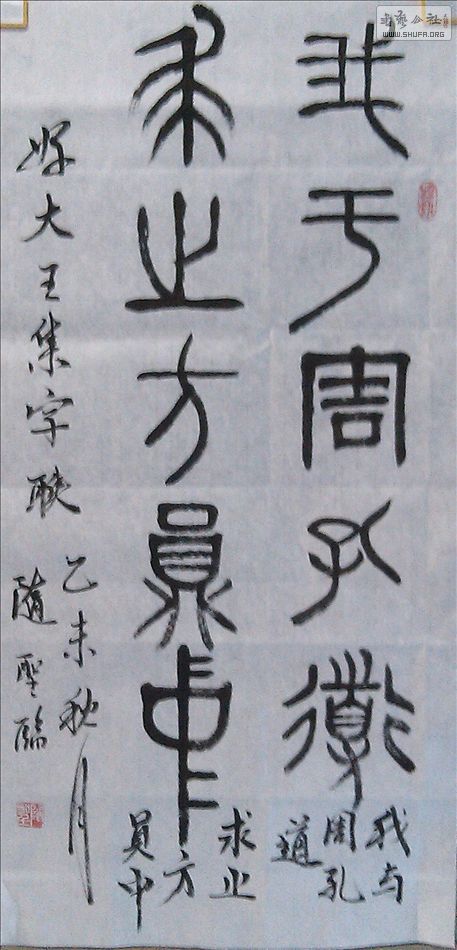 書藝公社
WWW.SHUFA.ORG
我于周孔道
我与
周孔
道
求止方員中
求止
方
員中
好大王集字联
乙未秋月
隨聖臨